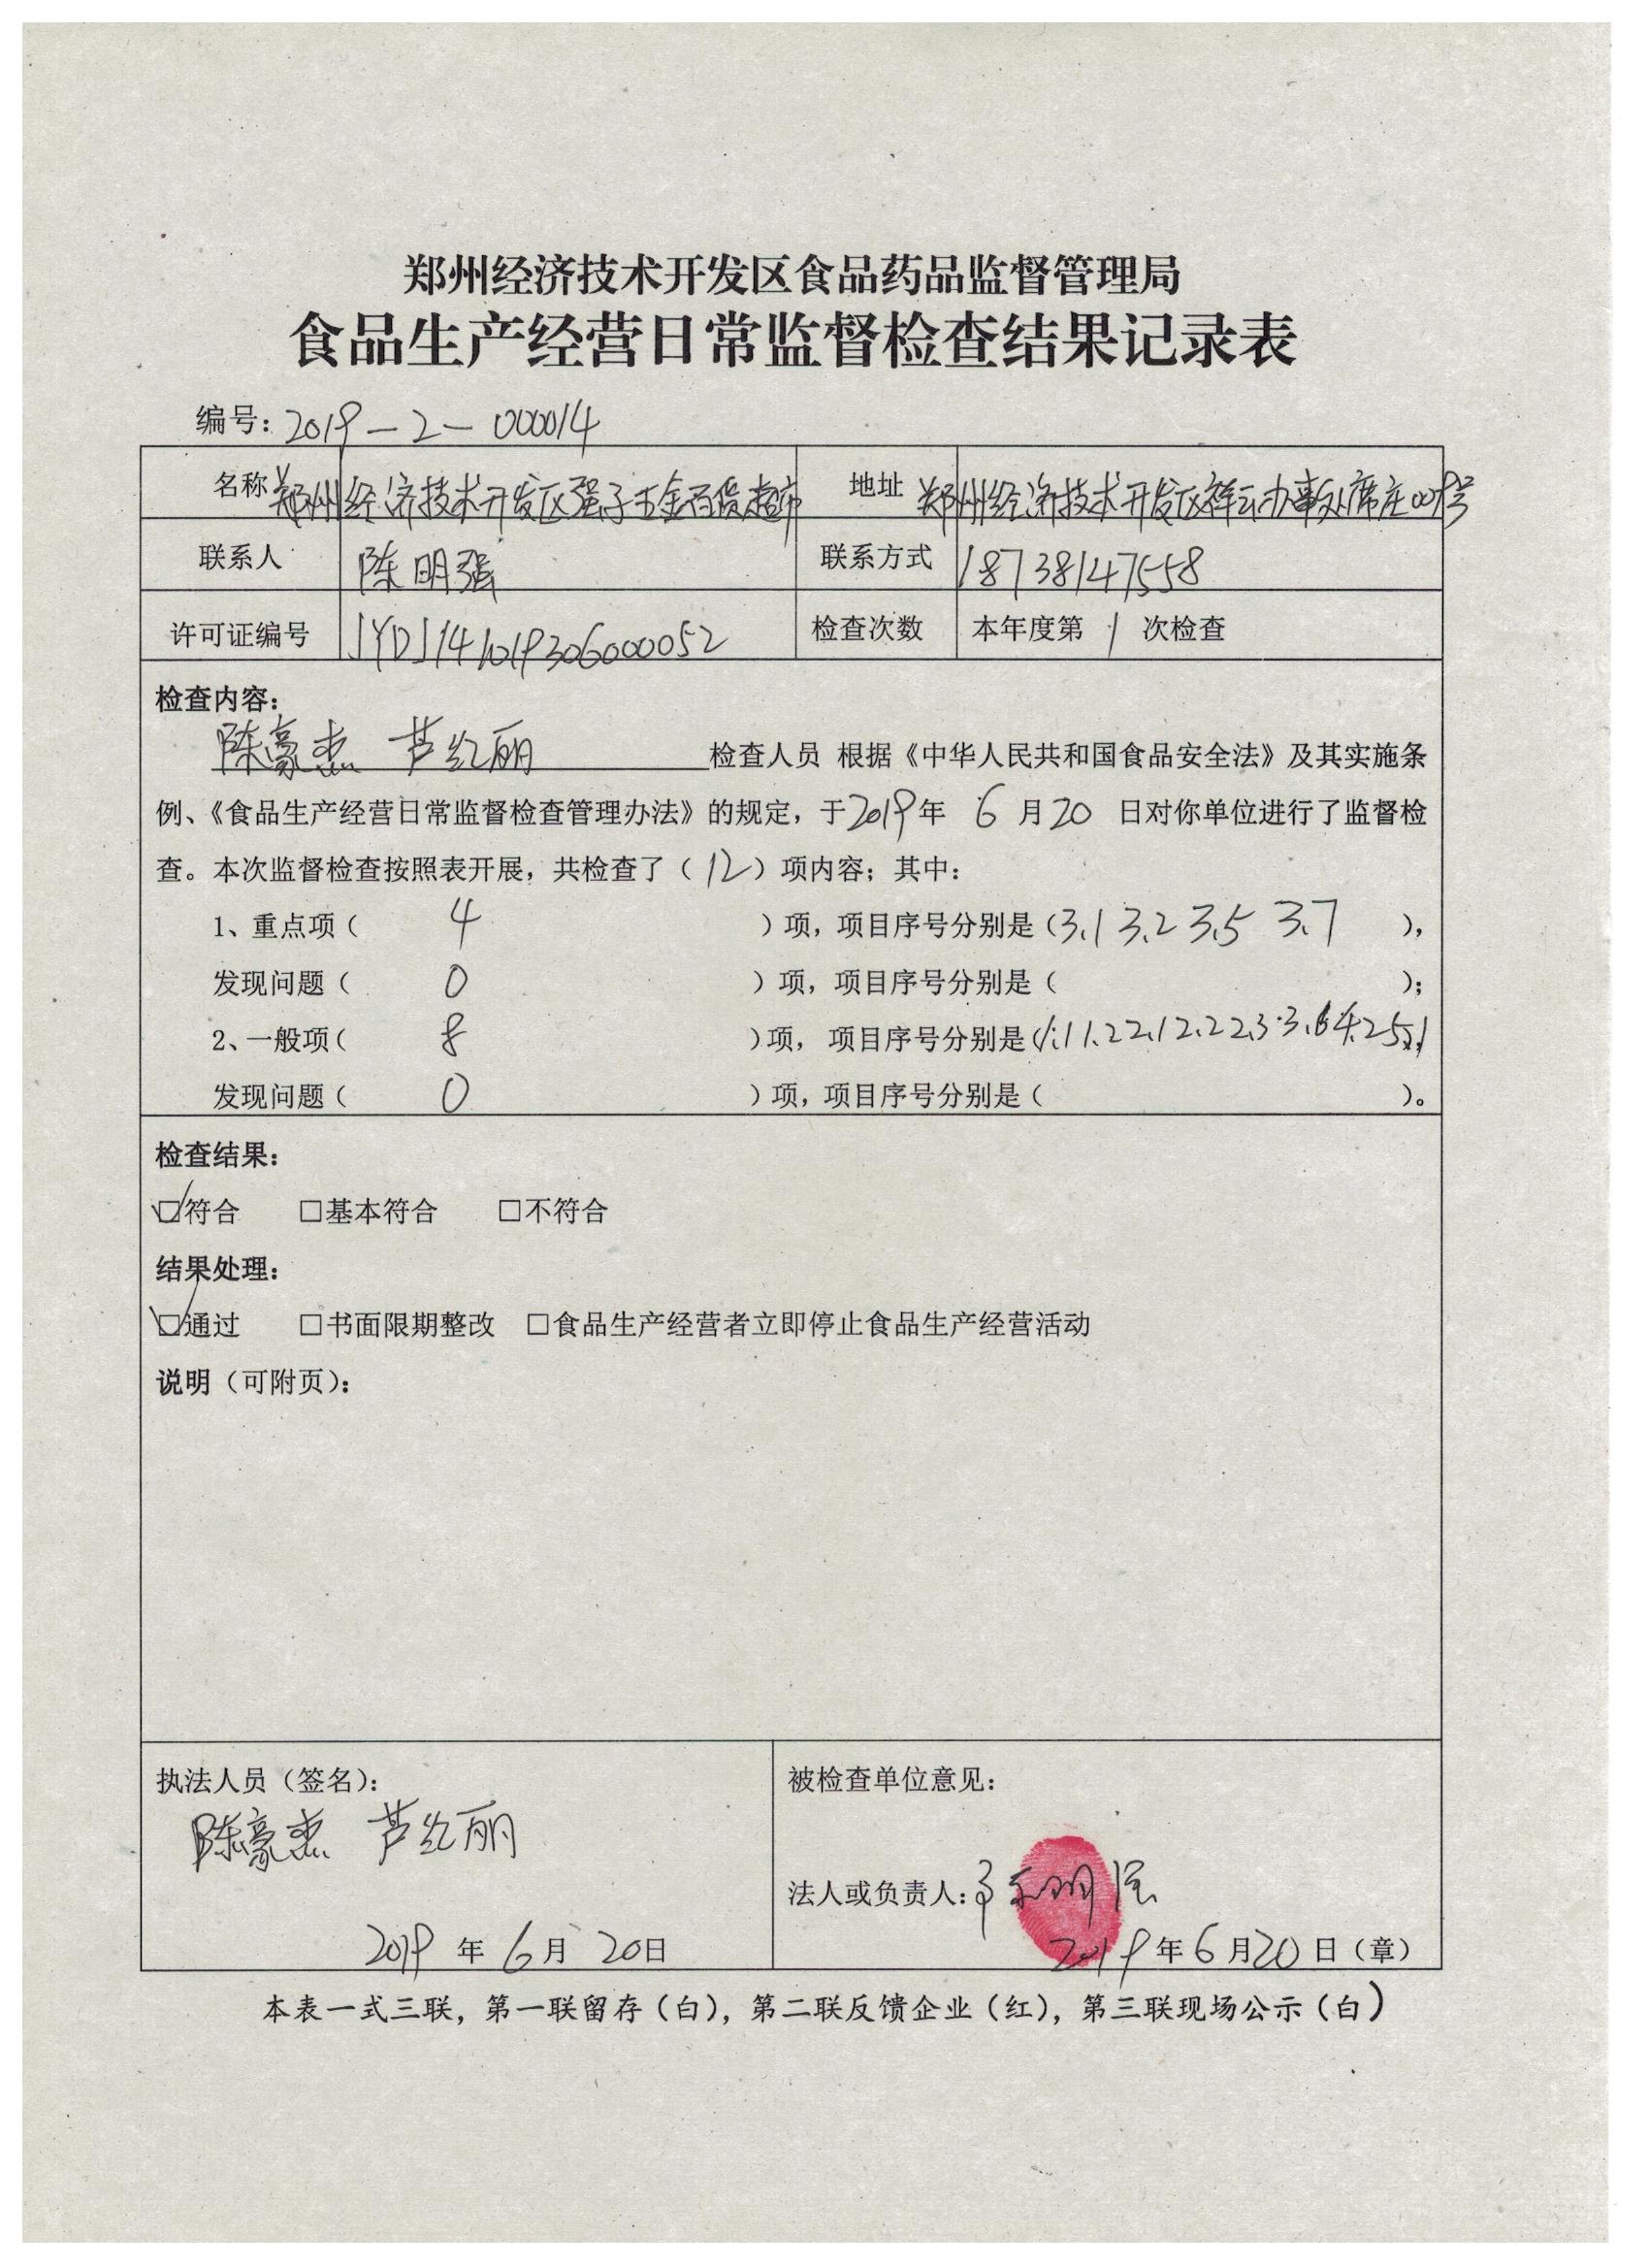 郑州经济技术开发区食品药品监督管理局
食品生产经营日常监督检查结果记录表
编号：2019-2-000014
名称 郑州经济技术开发区强子五金百货超市 地址 郑州经济技术开发区祥云办事处席庄009号
联系人 陈明强 联系方式 18738147558
许可证编号 JYDJ14101930600052 检查次数 本年度第 1 次检查
检查内容：
陈豪杰 芦红丽 检查人员 根据《中华人民共和国食品安全法》及其实施条
例、《食品生产经营日常监督检查管理办法》的规定，于2019年 6 月20 日对你单位进行了监督检
查。本次监督检查按照表开展，共检查了（12）项内容；其中：
1、重点项（ 4 ）项，项目序号分别是（3.1 3.2 3.5 3.7 ），
发现问题（ 0 ）项，项目序号分别是（ ）；
2、一般项（ 8 ）项， 项目序号分别是（1.1 1.2 2.1 2.2 2.3 3.6 4.2 5.1
发现问题（ 0 ）项，项目序号分别是（ ）。
检查结果：
☑符合 □基本符合 □不符合
结果处理：
☑通过 □书面限期整改 □食品生产经营者立即停止食品生产经营活动
说明（可附页）：
执法人员（签名）： 被检查单位意见：
陈豪杰 芦红丽
法人或负责人：陈明强
2019 年 6 月 20日 2019年 6 月20 日（章）
本表一式三联，第一联留存（白），第二联反馈企业（红），第三联现场公示（白）